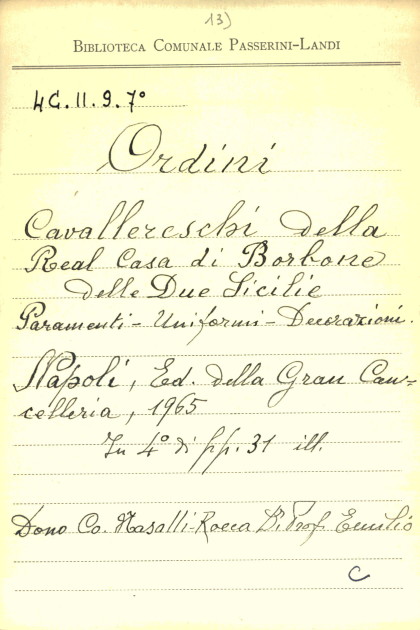 13)
BIBLIOTECA COMUNALE PASSERINI-LANDI
4C.II.9.7°
Ordini
Cavallereschi della
Real Casa di Borbone
delle Due Sicilie
Paramenti - Uniformi - Decorazioni.
Napoli, Ed. della Gran Can=
celleria, 1965
In 4° di pp. 31 ill.
Dono Co. Nasalli-Rocca Prof. Emilio
C